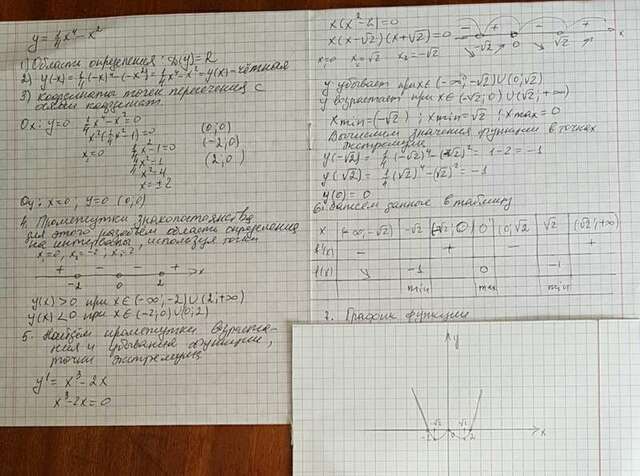 y = 1/4 x⁴ - x²
1) Области определения: D(y) = R
2) y(-x) = 1/4 (-x)⁴ - (-x²) = 1/4 x⁴ - x² = y(x) - чётная
3) Координаты точек пересечения с
осями координат.
Ox: y=0 1/4 x⁴ - x² = 0
x²(1/4 x² - 1) = 0 (0; 0)
x=0 1/4 x² - 1 = 0 (-2; 0)
1/4 x² = 1 (2; 0)
x² = 4
x = ±2
Oy: x=0, y=0 (0; 0)
4. Промежутки знакопостоянства
для этого разобьём области определения
на интервалы, используя точки
x₁=0, x₂=-2, x₃=2
+ - - + x
-2 0 2
y(x) > 0 при x ∈ (-∞; -2) ∪ (2; +∞)
y(x) < 0 при x ∈ (-2; 0) ∪ (0; 2)
5. Найдём промежутки возраста-
ния и убывания функции,
точки экстремума
y' = x³ - 2x
x³ - 2x = 0
x(x² - 2) = 0
x(x - √2)(x + √2) = 0
x=0 x₁=√2 x₂=-√2
- + - + x
-√2 0 √2
y убывает при x ∈ (-∞; -√2) ∪ (0; √2)
y возрастает при x ∈ (-√2; 0) ∪ (√2; +∞)
xmin = (-√2) ; xmin = √2 ; xmax = 0
Вычислим значения функции в точках
экстремума
y(-√2) = 1/4 (-√2)⁴ - (-√2)² = 1 - 2 = -1
y(√2) = 1/4 (√2)⁴ - (√2)² = -1
y(0) = 0
6. Запишем данные в таблицу
x (-∞; -√2) -√2 (-√2; 0) 0 (0; √2) √2 (√2; +∞)
f'(x) - + - +
f(x) ↘ -1 0 -1
min max min
7. График функции
y
-2 -√2 0 √2 2 x